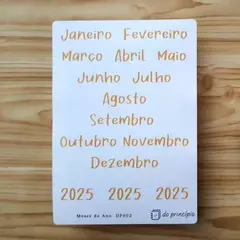 Janeiro Fevereiro
Março Abril Maio
Junho Julho
Agosto
Setembro
Outubro Novembro
Dezembro
2025 2025 2025
Meses do Ano DP002
do princípio